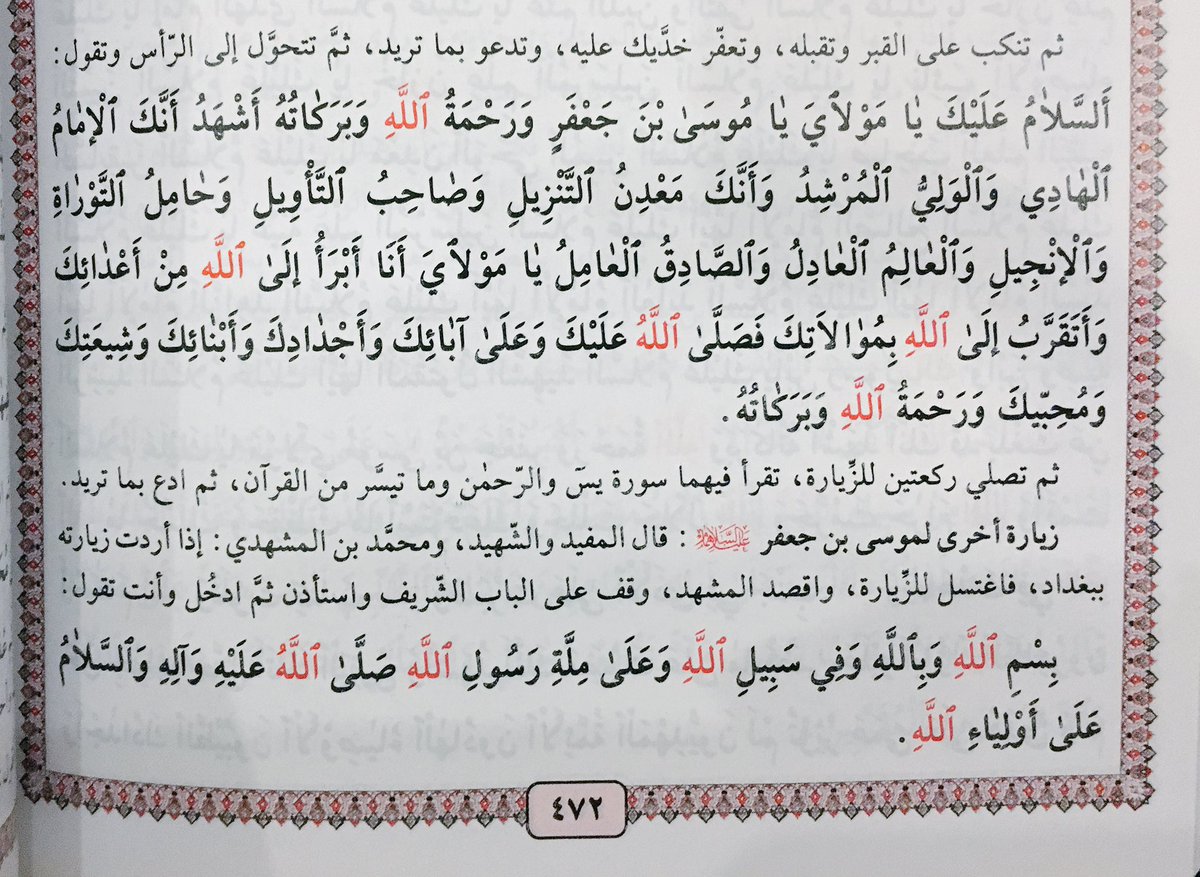 ثم تنكب على القبر وتقبله، وتعفّر خدَّيك عليه، وتدعو بما تريد، ثمَّ تتحوَّل إلى الرّأس وتقول:
أَلسَّلاٰمُ عَلَيْكَ يٰا مَوْلاٰيَ يٰا مُوسَىٰ بْنَ جَعْفَرٍ وَرَحْمَةُ ٱللَّهِ وَبَرَكٰاتُهُ أَشْهَدُ أَنَّكَ ٱلْإِمٰامُ
ٱلْهٰادِي وَٱلْوَلِيُّ ٱلْمُرْشِدُ وَأَنَّكَ مَعْدِنُ ٱلتَّنْزِيلِ وَصٰاحِبُ ٱلتَّأْوِيلِ وَحٰامِلُ ٱلتَّوْرٰاةِ
وَٱلْإِنْجِيلِ وَٱلْعٰالِمُ ٱلْعٰادِلُ وَٱلصَّادِقُ ٱلْعٰامِلُ يٰا مَوْلاٰيَ أَنَا أَبْرَأُ إِلَىٰ ٱللَّهِ مِنْ أَعْدٰائِكَ
وَأَتَقَرَّبُ إِلَىٰ ٱللَّهِ بِمُوٰالاَتِكَ فَصَلَّىٰ ٱللَّهُ عَلَيْكَ وَعَلَىٰ آبٰائِكَ وَأَجْدٰادِكَ وَأَبْنٰائِكَ وَشِيعَتِكَ
وَمُحِبّيكَ وَرَحْمَةُ ٱللَّهِ وَبَرَكٰاتُهُ.
ثم تصلي ركعتين للزِّيارة، تقرأ فيهما سورة يسَ والرّحمٰن وما تيسَّر من القرآن، ثم ادع بما تريد.
زيارة أخرى لموسى بن جعفر عليه السلام: قال المفيد والشّهيد، ومحمَّد بن المشهدي: إذا أردت زيارته
ببغداد، فاغتسل للزِّيارة، واقصد المشهد، وقف على الباب الشّريف واستأذن ثمَّ ادخُل وأنت تقول:
بِسْمِ ٱللَّهِ وَبِٱللَّهِ وَفِي سَبِيلِ ٱللَّهِ وَعَلَىٰ مِلَّةِ رَسُولِ ٱللَّهِ صَلَّىٰ ٱللَّهُ عَلَيْهِ وَآلِهِ وَٱلسَّلاٰمُ
عَلَىٰ أَوْلِيٰاءِ ٱللَّهِ.
٤٧٢